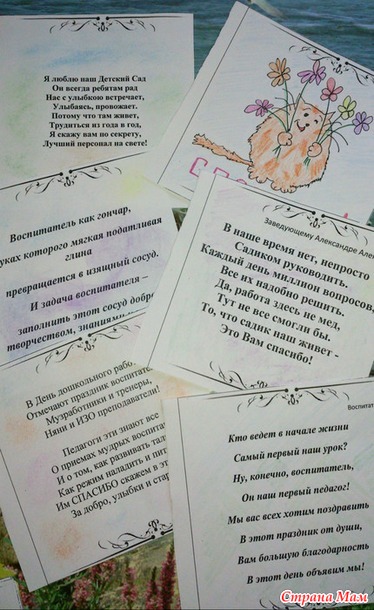 Я люблю наш Детский Сад
Он всегда ребятам рад
Нас с улыбкою встречает,
Улыбаясь, провожает.
Потому что там живет,
Трудиться из года в год,
Я скажу вам по секрету,
Лучший персонал на свете!
Воспитатель как гончар,
уках которого мягкая податливая
глина
превращается в изящный сосуд.
И задача воспитателя –
заполнить этот сосуд добро
творчеством, знаниями
Заведующему Александре Але
В наше время нет, непросто
Садиком руководить.
Каждый день миллион вопросов,
Все их надобно решить.
Да, работа здесь не мед,
Тут не все смогли бы.
То, что садик наш живет -
Это Вам спасибо!
В День дошкольного рабо
Отмечают праздник воспитате
Музработники и тренеры,
Няни и ИЗО преподаватели!
Педагоги эти знают все
О приемах мудрых воспитат
И о том, как развивать тал
Как режим наладить и пит
Им СПАСИБО скажем в эт
За добро, улыбки и стар
Воспитат
Кто ведет в начале жизни
Самый первый наш урок?
Ну, конечно, воспитатель,
Он наш первый педагог!
Мы вас всех хотим поздравить
В этот праздник от души,
Вам большую благодарность
В этот день объявим мы!
Страна Мам